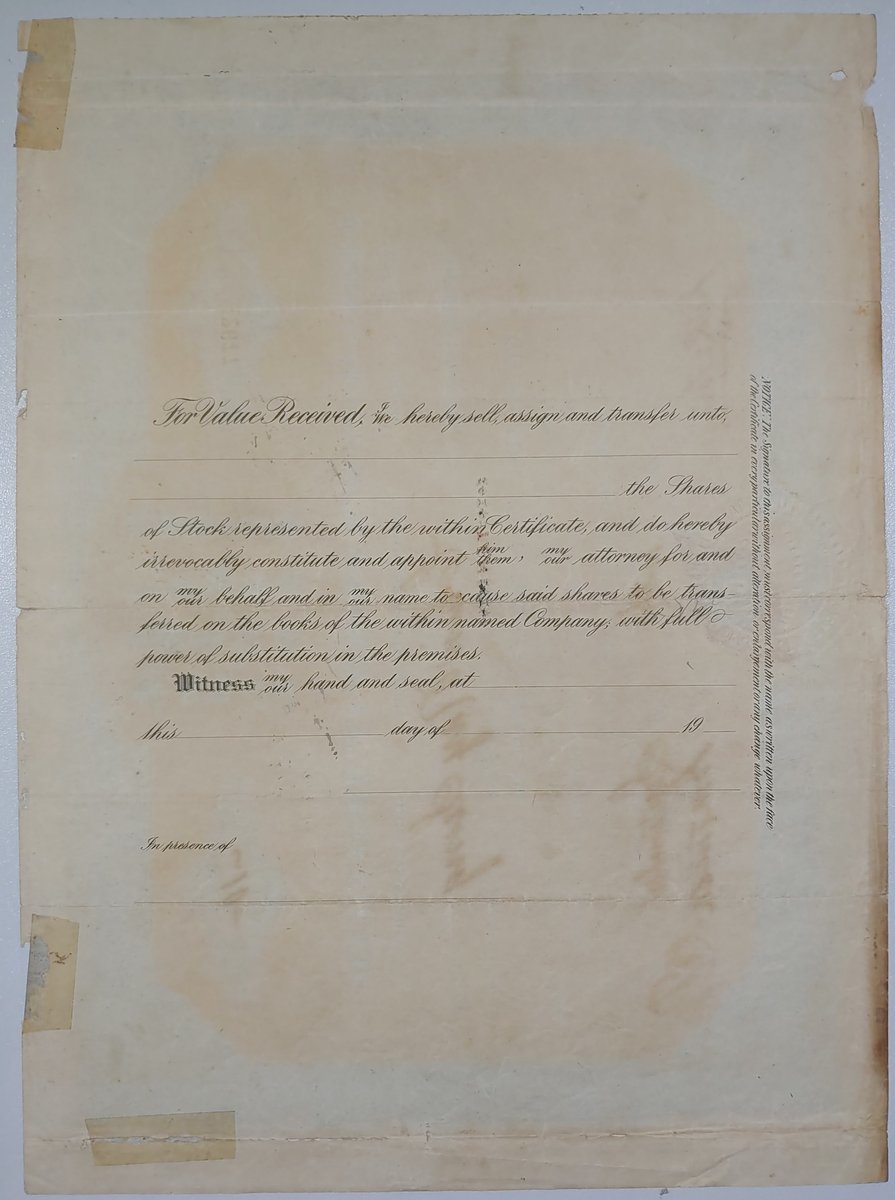 For Value Received, I/We hereby sell, assign and transfer unto,
the Shares
of Stock represented by the within Certificate, and do hereby
irrevocably constitute and appoint him/them, my/our attorney for and
on my/our behalf and in my/our name to cause said shares to be trans-
ferred on the books of the within named Company; with full
power of substitution in the premises.
Witness my/our hand and seal, at
this day of 19
In presence of
NOTICE: The Signature to this assignment must correspond with the name as written upon the face
of the Certificate in every particular without alteration or enlargement or any change whatever.